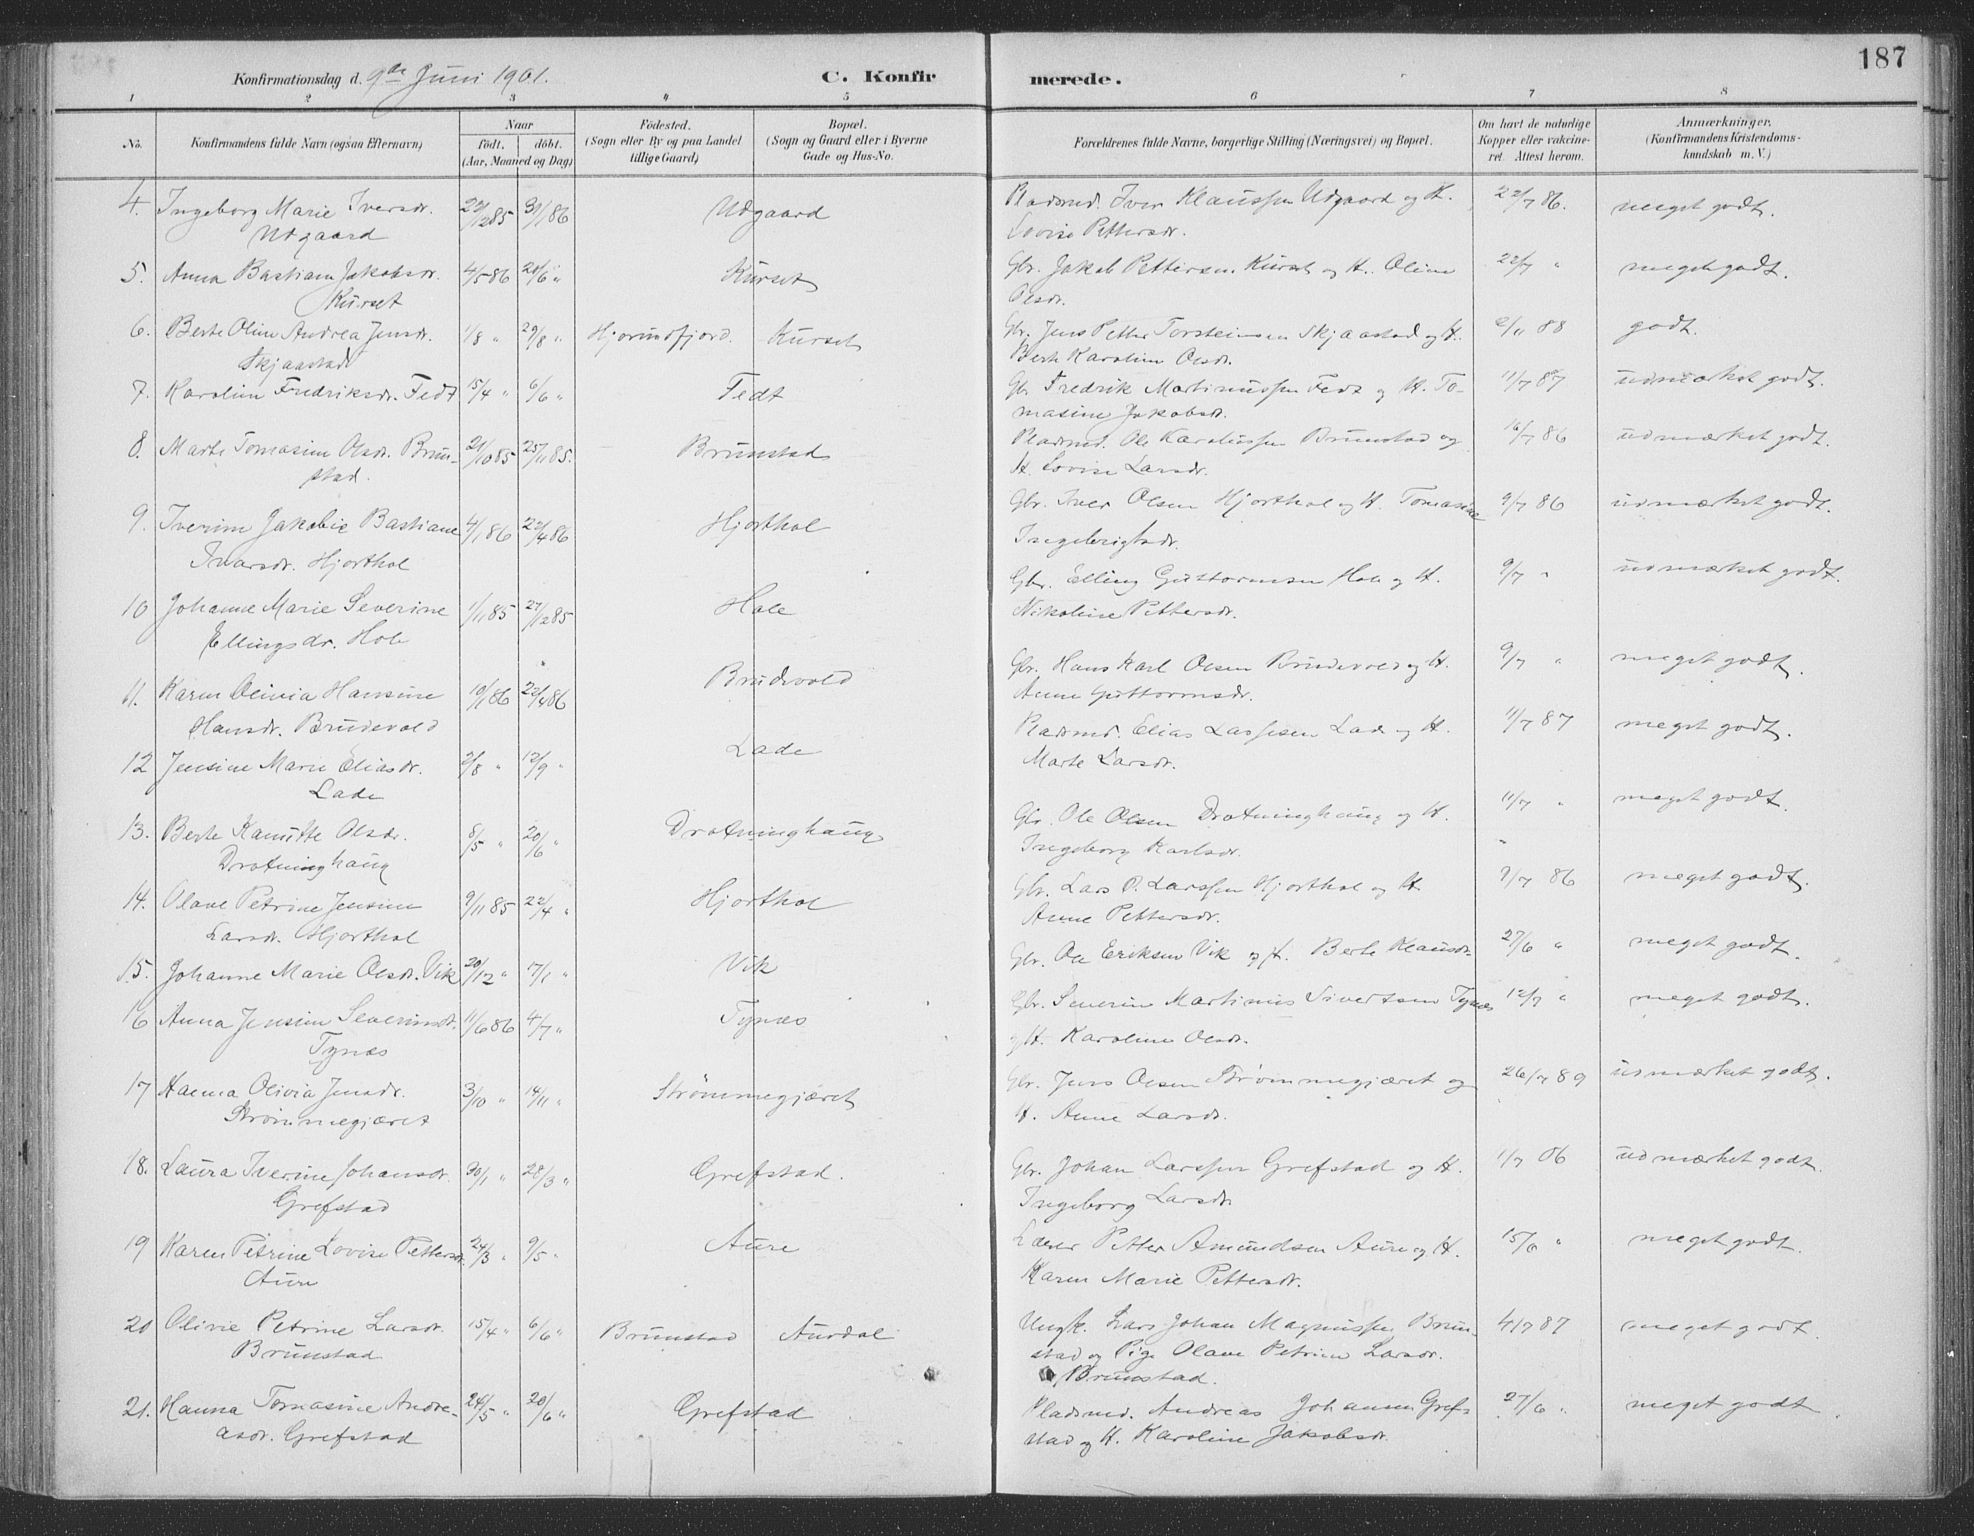 187
Konfirmationsdag d. 9de Juni 1901. C. Konfirmerede.
1 2 3 4 5 6 7 8
No. Konfirmandens fulde Navn (ogsaa Efternavn) Naar født. døbt. (Aar, Maaned og Dag) Fødested. (Sogn eller By og paa Landet tillige Gaard) Bopæl. (Sogn og Gaard eller i Byerne Gade og Hus-No. Forældrenes fulde Navne, borgerlige Stilling (Næringsvei) og Bopæl. Om havt de naturlige Kopper eller vakcineret. Attest herom. Anmærkninger. (Konfirmandens Kristendomskundskab m. V.)
4. Ingeborg Marie Iversdr. 22/12 85 31/1 86 Udgaard Pladsmd. Iver Klaussen Udgaard og H. 22/7 86. meget godt.
Udgaard Lovise Pettersdr.
5. Anna Bastiane Jakobsdr. 4/5 86 20/6 " Kurset Gbr. Jakob Pettersen Kurset og H. Oline 22/7 " meget godt.
Kurset Olsdr.
6. Berte Oline Andrea Jensdr. 1/8 " 29/8 " Hjorundfjord. Kurset Gbr. Jens Petter Torsteinsen Skjaastad og H. 2/11 88 godt.
Skjaastad Berte Karoline Olsdr.
7. Karoline Fredriksdr. Fedt 15/4 " 6/6 " Fedt Gbr. Fredrik Martinussen Fedt og H. To- 11/7 87 udmærket godt.
masine Jakobsdr.
8. Marte Tomasine Olsdr. Brun- 21/10 85 25/11 85. Brunstad Pladsmd. Ole Karolussen Brunstad og 16/7 86 udmærket godt.
stad. H. Lovise Larsdr.
9. Iverine Jakobie Bastiane 4/1 86 22/4 86 Hjorthol Gbr. Iver Olsen Hjorthol og H. Tomasine 9/7 86 udmærket godt.
Ivarsdr. Hjorthol Ingebrigtsdr.
10 Johanne Marie Severine 1/11 85 27/12 85 Hole Gbr. Elling Guttormsen Hole og H. 9/7 " udmærket godt.
Ellingsdr. Hole Nikoline Pettersdr.
11. Karen Olivia Hansine 10/1 86 22/4 86 Brudevold Gbr. Hans Karl Olsen Brudevold og H. 9/7 " meget godt.
Hansdr. Brudevold Anne Guttormsdr.
12 Jensine Marie Eliasdr. 2/8 " 12/9 " Lade Pladsmd. Elias Lassesen Lade og H. 11/7 87 meget godt.
Lade Marte Larsdr.
13. Berte Kanutte Olsdr. 8/5 " 20/6 " Drotninghaug Gbr. Ole Olsen Drotninghaug og H. 11/7 " meget godt.
Drotninghaug Ingeborg Karlsdr.
14. Olave Petrine Jensine 9/11 85 22/4 " Hjorthol Gbr. Lars P. Larssen Hjorthol og H. 9/7 86 meget godt.
Larsdr. Hjorthol Anne Pettersdr.
15. Johanne Marie Olsdr. Vik 20/12 " 7/1 " Vik Gbr. Ole Eriksen Vik og H. Berte Klausdr. 27/6 " meget godt.
16 Anna Jensine Severinsdr. 11/6 86 4/7 " Tynæs Gbr. Severin Martinus Sivertsen Tynæs 12/7 " meget godt.
Tynæs og H. Karoline Olsdr.
17 Hanna Olivia Jensdr. 3/10 " 14/11 " Strømmegjæret Gbr. Jens Olsen Strømmegjæret og 26/7 89 udmærket godt.
Strømmegjæret H. Anne Larsdr.
18. Laura Iverine Johansdr. 30/1 " 28/3 " Grefstad. Gbr. Johan Larssen Grefstad og H. 1/7 06 udmærket godt.
Grefstad Ingeborg Larsdr.
19 Karen Petrine Lovise Pettersdr. 24/3 " 9/5 " Aure Lærer Petter Amundsen Aure og H. 15/6 " meget godt.
Aure Karen Marie Pettersdr.
20 Olivie Petrine Larsdr. 15/4 " 6/6 " Brunstad Aurdal Ungk. Lars Johan Magnussen Brun- 4/7 87 meget godt.
Brunstad stad og Pige Olave Petrine Larsdr.
Brunstad.
21. Hanna Tomasine Andre- 24/5 " 20/6 " Grefstad Pladsmd. Andreas Johansen Gref- 27/6 " meget godt.
asdr. Grefstad stad og H. Karoline Jakobsdr.